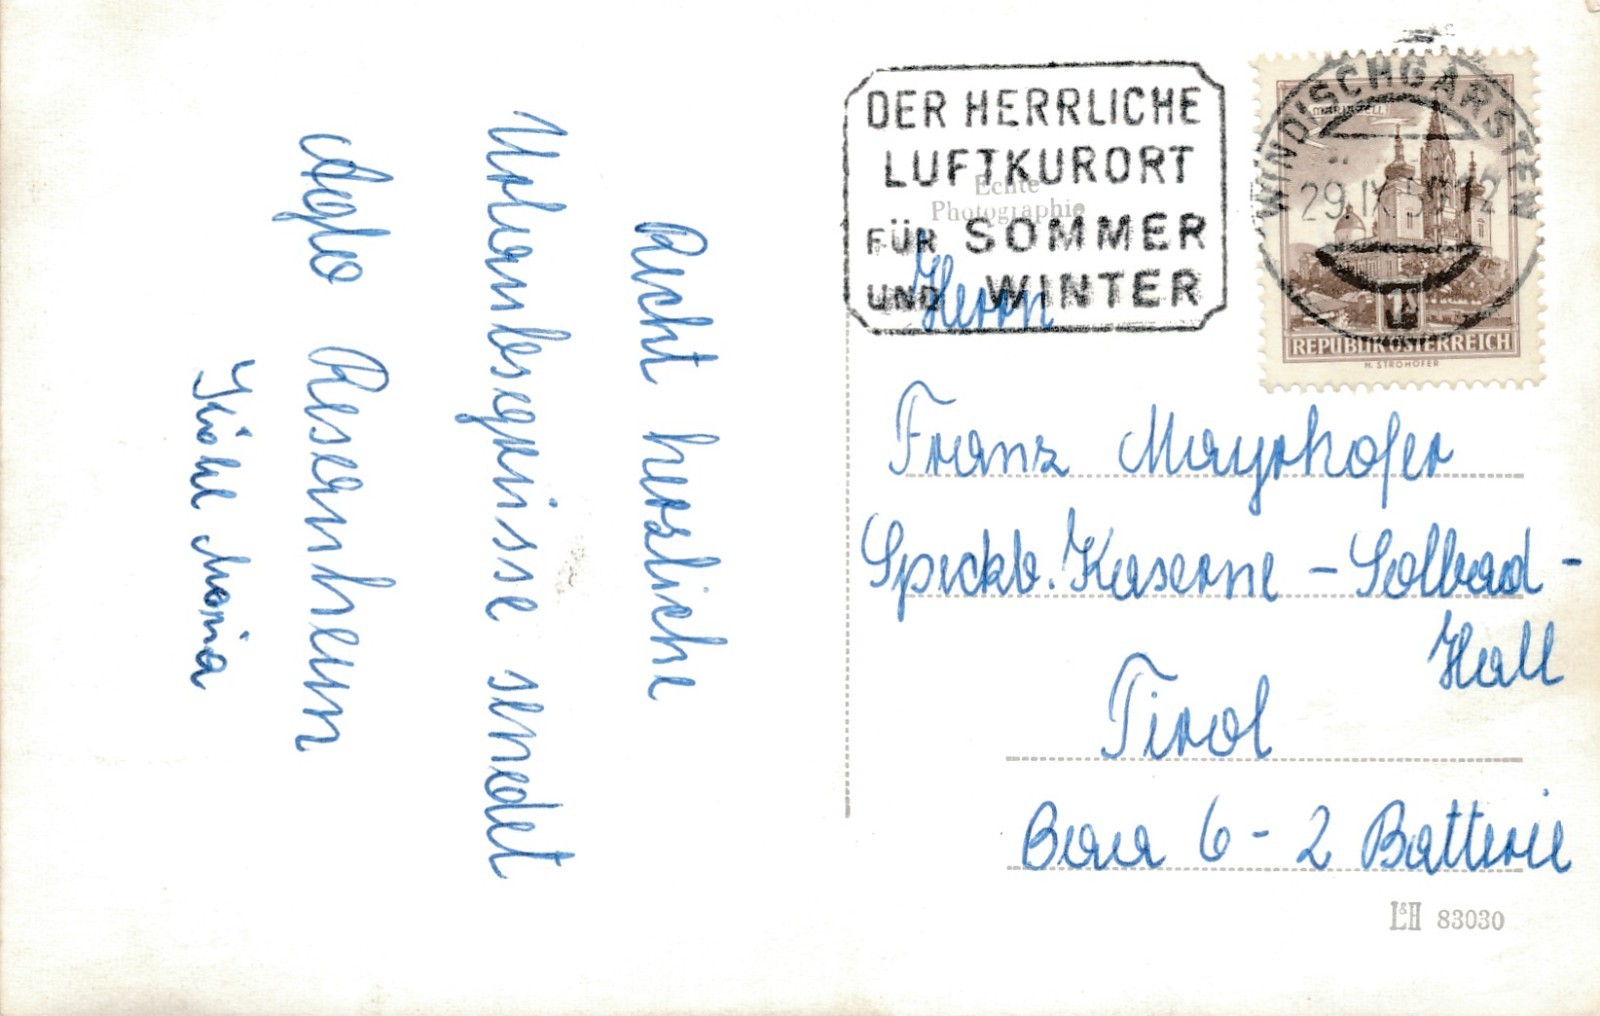 Recht herzliche
Urlaubsgrüsse sendet
Rosenheim
Maria
DER HERRLICHE
LUFTKURORT
FÜR SOMMER
UND WINTER
Echte
Photographie
WINDISCHGARSTEN
29.IX 59 12
MARIAZELL
1 S
REPUBLIK ÖSTERREICH
H. STROHOFER
Herrn
Franz Mayrhofer
Speckb. Kaserne - Solbad -
Hall
Tirol
6 - 2 Batterie
L&H 83030